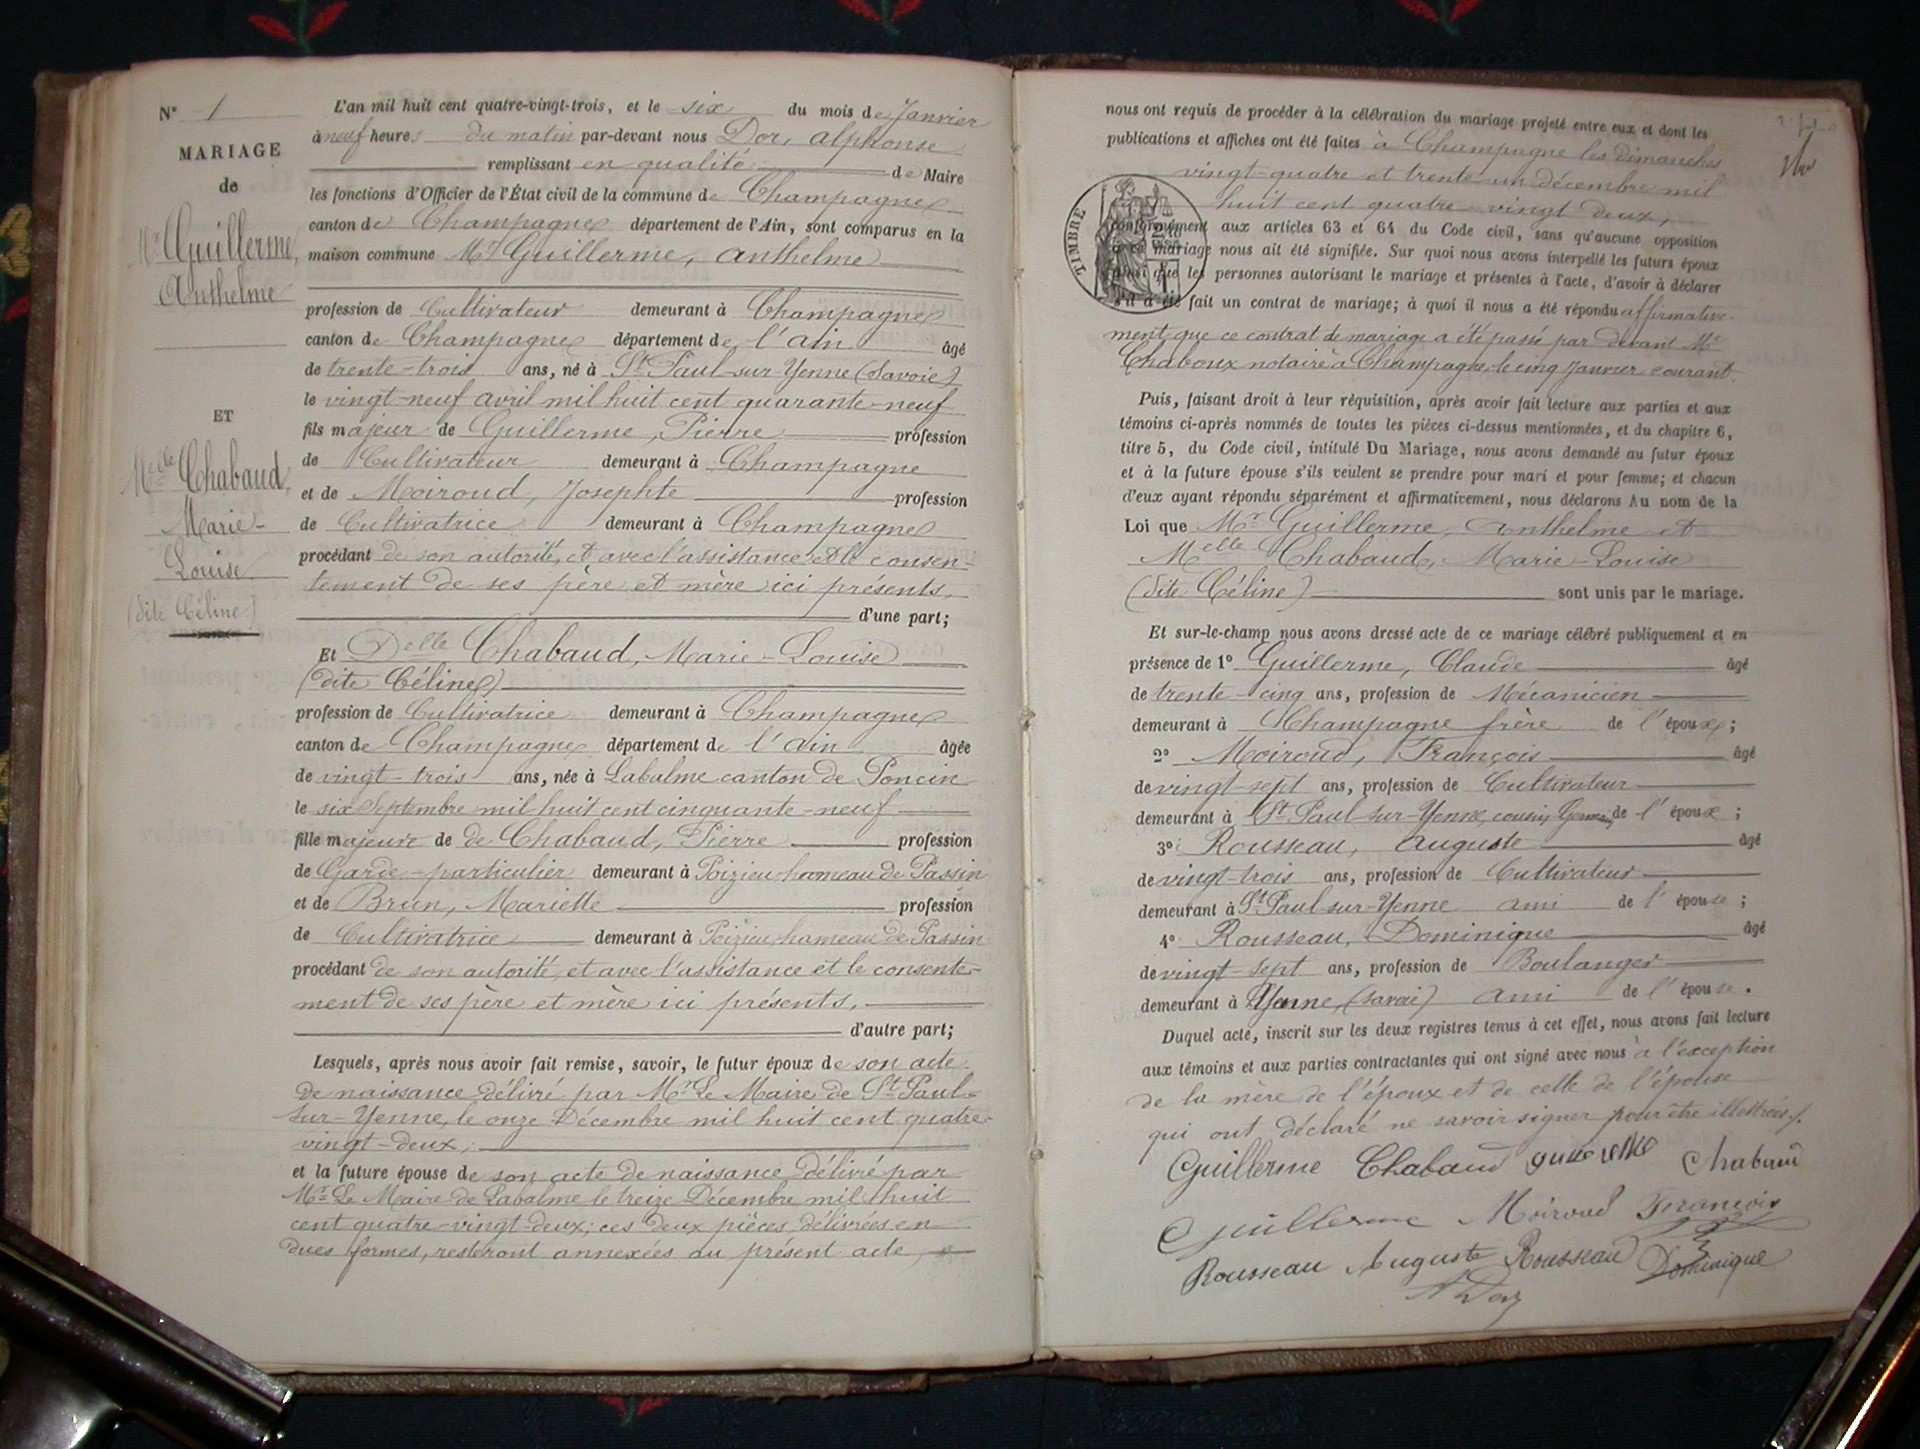 N° 1
MARIAGE
de
Mr Guillerme,
Anthelme
ET
Melle Chabaud,
Marie-
Louise
(dite Céline)
L'an mil huit cent quatre-vingt-trois, et le six du mois de Janvier
à neuf heures du matin par-devant nous Dor, alphonse
remplissant en qualité de Maire
les fonctions d'Officier de l'État civil de la commune de Champagne
canton de Champagne département de l'Ain, sont comparus en la
maison commune Mr Guillerme, Anthelme
profession de Cultivateur demeurant à Champagne
canton de Champagne département de l'ain âgé
de trente-trois ans, né à St Paul-sur-Yenne (Savoie)
le vingt-neuf avril mil huit cent quarante-neuf
fils majeur de Guillerme, Pierre profession
de Cultivateur demeurant à Champagne
et de Moiroud, Josephte profession
de Cultivatrice demeurant à Champagne
procédant de son autorité, et avec l'assistance et le consen-
tement de ses père et mère ici présents,
d'une part;
Et Delle Chabaud, Marie-Louise
(dite Céline)
profession de Cultivatrice demeurant à Champagne
canton de Champagne département de l'ain âgée
de vingt-trois ans, née à Labalme canton de Poncin
le six Septembre mil huit cent cinquante-neuf
fille majeure de de Chabaud, Pierre profession
de Garde-particulier demeurant à Poizieu hameau de Passin
et de Brun, Mariette profession
de Cultivatrice demeurant à Poizieu hameau de Passin
procédant de son autorité, et avec l'assistance et le consente-
ment de ses père et mère ici présents,
d'autre part;
Lesquels, après nous avoir fait remise, savoir, le futur époux de son acte
de naissance délivré par Mr Le Maire de St Paul-
sur-Yenne, le onze Décembre mil huit cent quatre-
vingt-deux;
et la future épouse de son acte de naissance délivré par
Mr Le Maire de Labalme le treize Décembre mil huit
cent quatre-vingt-deux; ces deux pièces délivrées en
dues formes, resteront annexées au présent acte,
nous ont requis de procéder à la célébration du mariage projeté entre eux et dont les
publications et affiches ont été faites à Champagne les dimanches
vingt-quatre et trente-un décembre mil
huit cent quatre-vingt deux,
TIMBRE
conformément aux articles 63 et 64 du Code civil, sans qu'aucune opposition
à ce mariage nous ait été signifiée. Sur quoi nous avons interpellé les futurs époux
ainsi que les personnes autorisant le mariage et présentes à l'acte, d'avoir à déclarer
s'il a été fait un contrat de mariage; à quoi il nous a été répondu affirmative-
ment que ce contrat de mariage a été passé par devant Me
Chaboux notaire à Champagne, le cinq Janvier courant.
Puis, faisant droit à leur réquisition, après avoir fait lecture aux parties et aux
témoins ci-après nommés de toutes les pièces ci-dessus mentionnées, et du chapitre 6,
titre 5, du Code civil, intitulé Du Mariage, nous avons demandé au futur époux
et à la future épouse s'ils veulent se prendre pour mari et pour femme; et chacun
d'eux ayant répondu séparément et affirmativement, nous déclarons Au nom de la
Loi que Mr Guillerme, Anthelme et
Melle Chabaud, Marie-Louise
(dite Céline) sont unis par le mariage.
Et sur-le-champ nous avons dressé acte de ce mariage célébré publiquement et en
présence de 1° Guillerme, Claude âgé
de trente-cinq ans, profession de Mécanicien
demeurant à Champagne frère de l'époux;
2° Moiroud, François âgé
de vingt-sept ans, profession de Cultivateur
demeurant à St Paul-sur-Yenne, cousin Germain de l'époux;
3° Rousseau, Auguste âgé
de vingt-trois ans, profession de Cultivateur
demeurant à St Paul-sur-Yenne ami de l'épouse;
4° Rousseau, Dominique âgé
de vingt-sept ans, profession de Boulanger
demeurant à Yenne, (Savoie) ami de l'épouse.
Duquel acte, inscrit sur les deux registres tenus à cet effet, nous avons fait lecture
aux témoins et aux parties contractantes qui ont signé avec nous à l'exception
de la mère de l'époux et de celle de l'épouse
qui ont déclaré ne savoir signer pour être illettrées.
Guillerme Chabaud Guillerme Chabaud
Guillerme Moiroud François
Rousseau Auguste Rousseau Dominique
A Dor